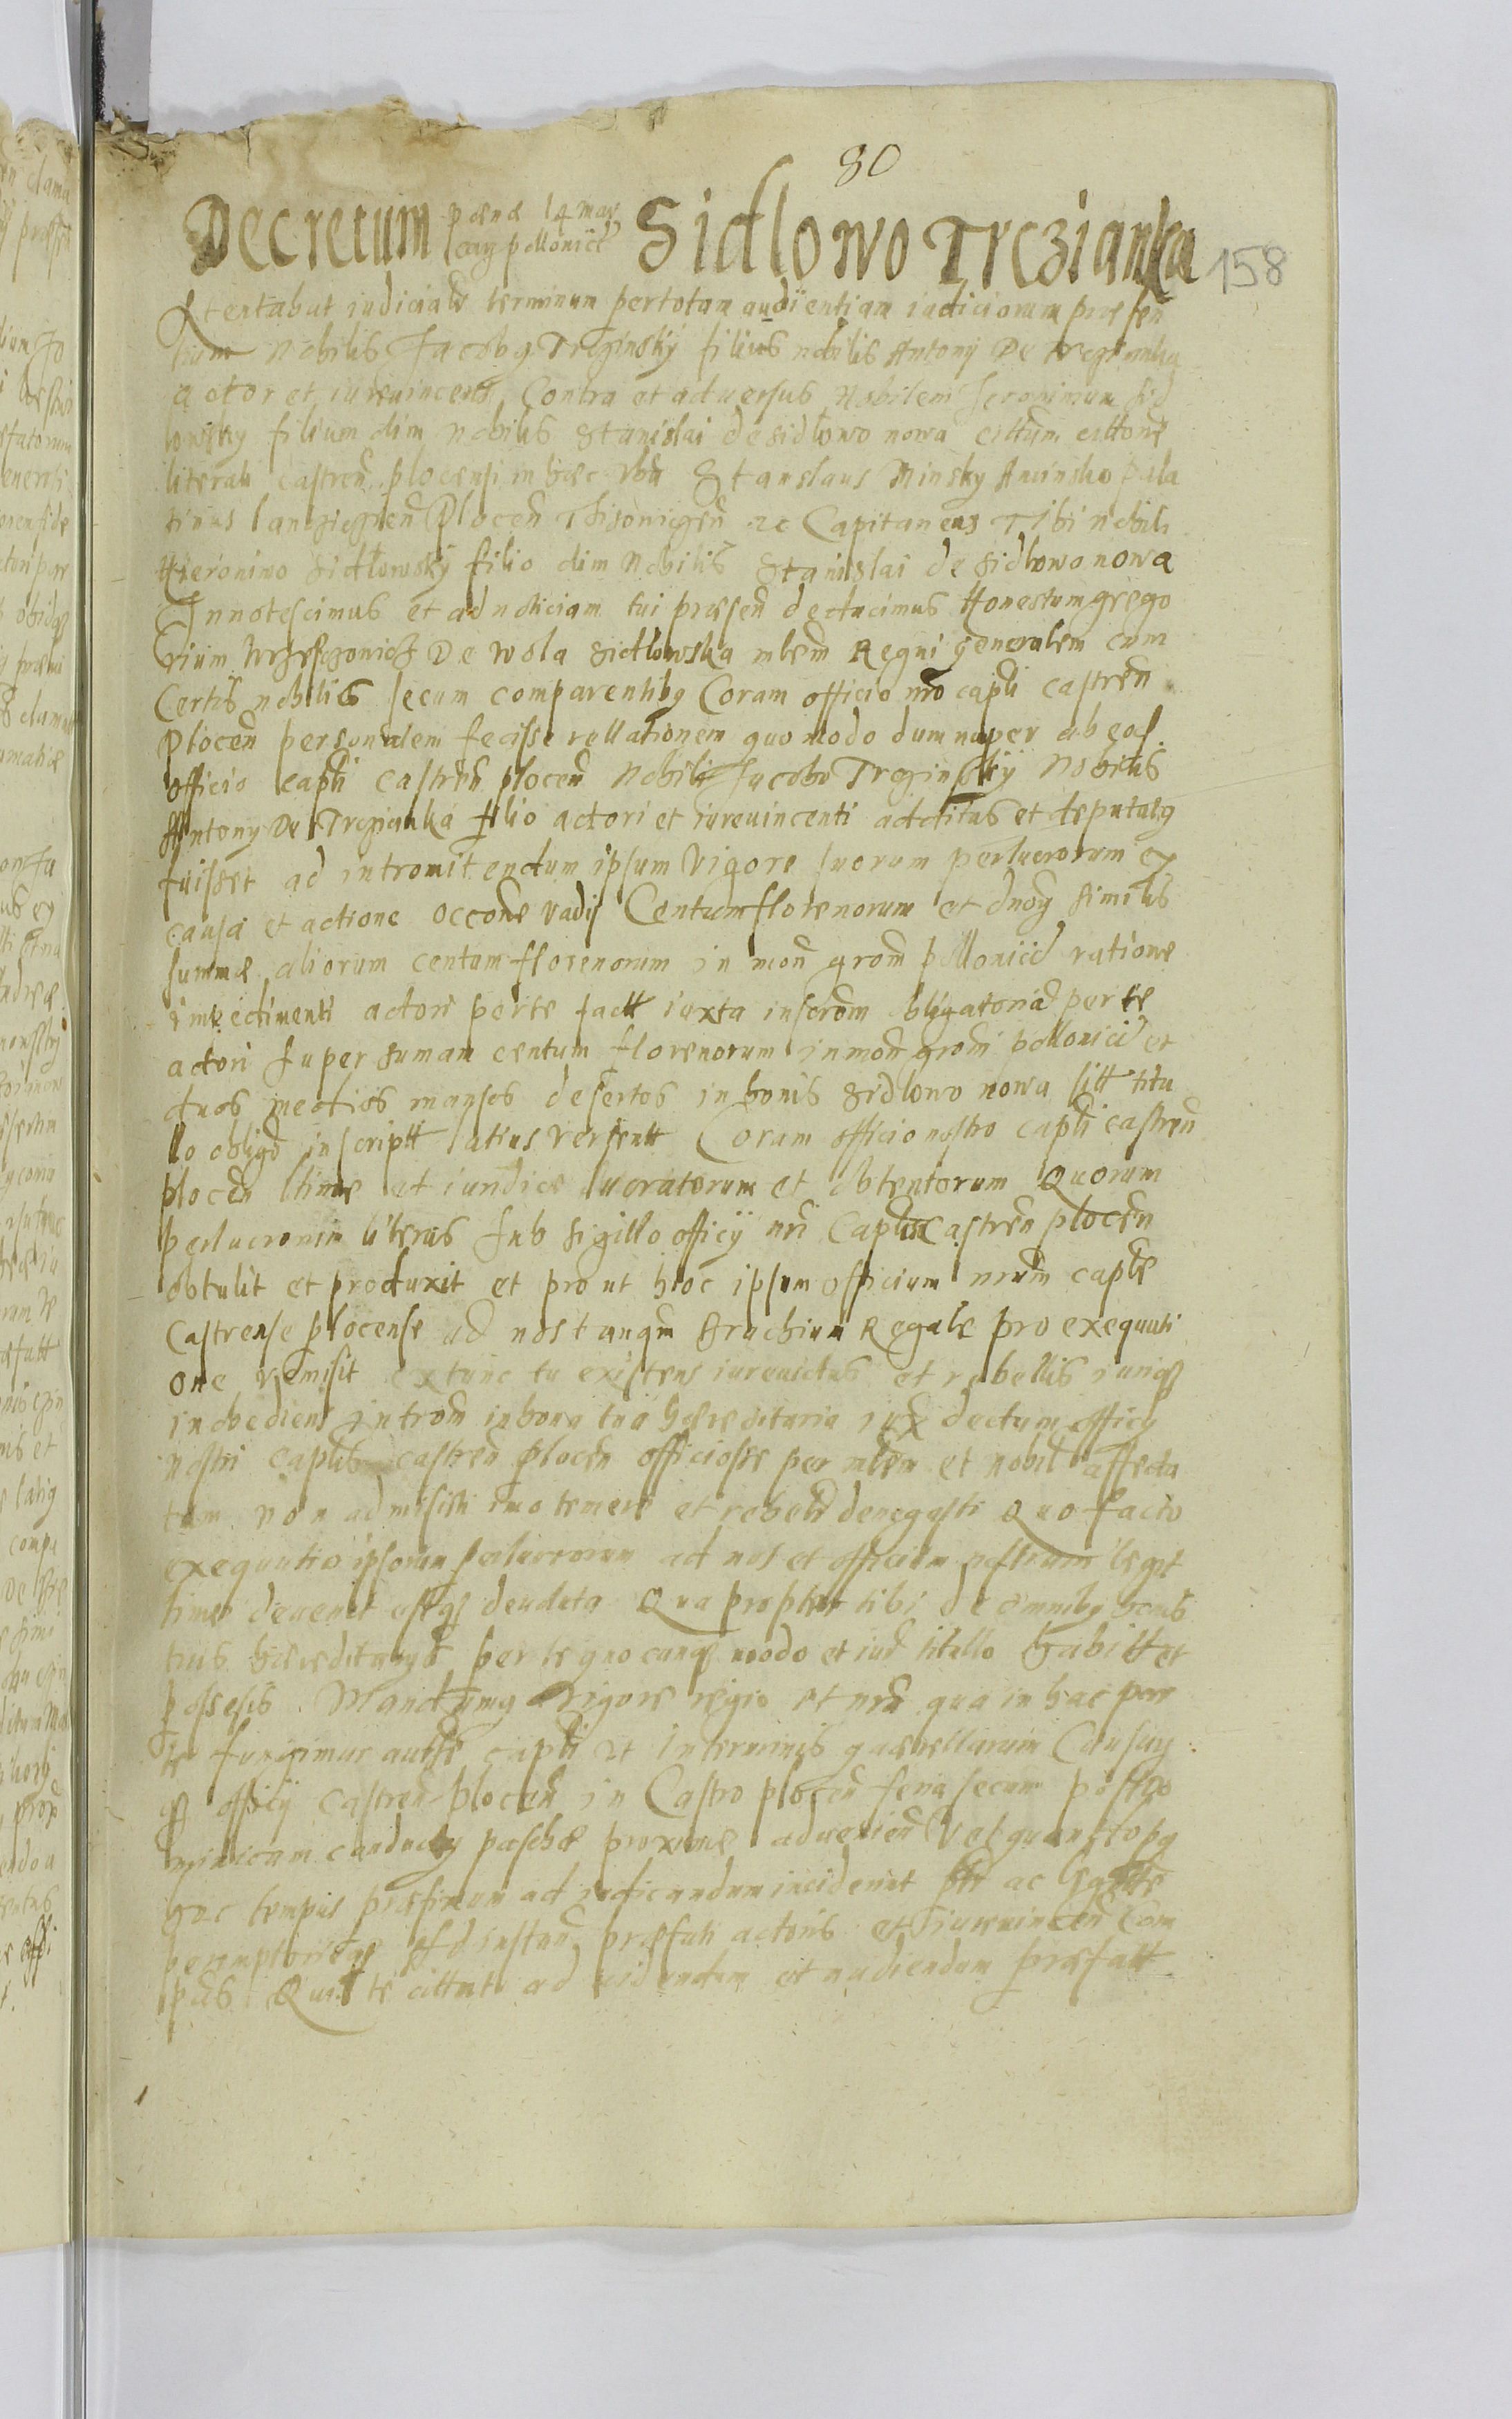 80
Decretum pænæ 14 mar
carz pollonice Sidlowo Trczianka
158
Attentabat iudicialr terminum per totam audientiam iudiciorum præsen
tium Nobilis Jacobg Treginsky filius nobilis Antony De
actor et iureuincens Contra et aduersus Nobilem Jeronimum Sid
lowsky filium olim nobilis Stanislai de sidlowo nowa cittum cittone
literali castren plocensi in hæc vba Stanslaus Minsky Aminsko pala
tinus lancziczien Plocen ac Capitaneus Tibi nobili
Hieronimo Sidlowsky filio olim Nobilis Stanislai de sidlowo nowa
Innotescimus et ad noticiam tui præsen deducimus Honestum grego
rium De wola sidlowska mlem Regni generalem cum
Certis nobilib secum comparentibg Coram officio nro capli castren
Plocen personalem fecisse rellationem quo modo dum nuper ab eod
officio capli castren plocen Nobili Jacobo Treginsky Nobilis
Antony De Trezianka filio actori et iureuincenti additus et deputatg
fuisset ad intromitendum ipsum vigore suorum perlucrorum ex
causa et actione occone vadij Centum florenorum et dnoy similis
summæ aliorum centum florenorum in mon grom polloniid ratione
impedimenti actori per te factt iuxta inscrom obligatoria per te
actori super sumam centum florenorum in mon grom pollonici et
duos medios mansos desertos in bonis sidlowo nowa sitt titu
lo obligd inscriptt latius versentt Coram officio nostro capli castren
plocen ltime et iuridice lucratorum et obtentorum Quorum
perlucrorum literas sub sigillo officij nri Caplis Castren plocen
obtulit et produxit et prout hoc ipsum officium nrum caple
Castrense plocense ad nos tanqm Brachium Regale pro exequuti
one remisit extunc tu existens iureuictus et rebellis iurisq
inobediens introm in bona tua hæreditaria iux dectum officij
nostri caplis castren plocen officiose per mlem et nobil affecta
tam non admisisti imo temere et rebelr denegasti Quo facto
exequutio ipsorum perlucrorum ad nos et officium nostrum legit
time deuenit estq deuoluta Qua propter tibi de omnibg bonis
tuis hæreditarys per te quocunq modo et iur titullo habitt et
possesis Mandamg vigore regio et nra qua in hac par
te fungimur autte capli ut in terminis quærellarum Causarg
q officij castren plocen in Castro plocen feria secunda post do
minicam conductg paschæ proxime aduenien vel quandopq
hoc tempus præsinum ad iudicandum inciderint ac
peremptorieqe Ad instan præfati actoris et iureuincen Com
peas Qui te cittat ad uidendum et audiendum præfatt